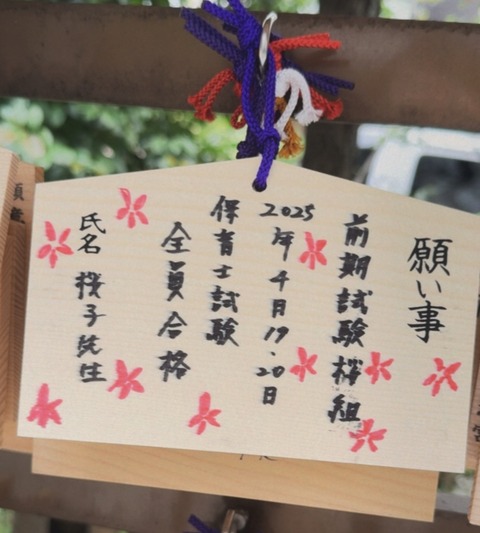 願い事
前期試験 桜組
2025年4月19・20日
保育士試験
全員合格
氏名 桜子先生